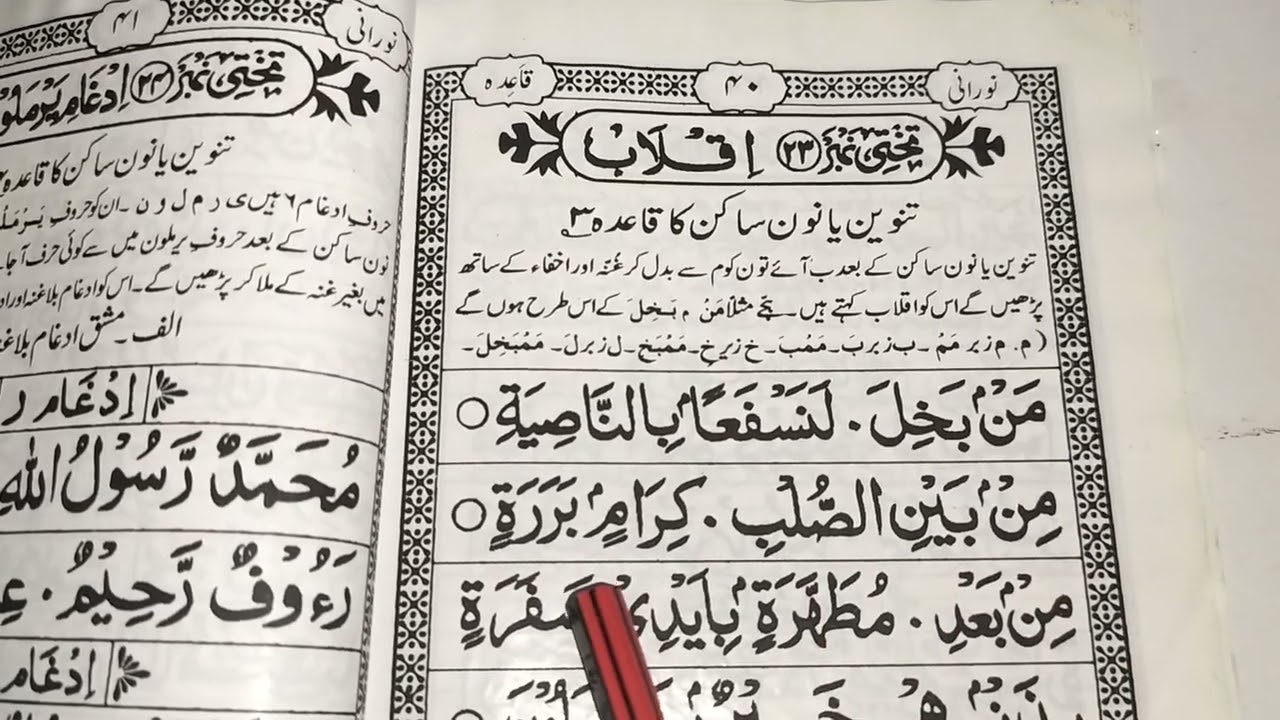 نورانی ۴۰ قاعدہ
تختی نمبر ۲۳ اِقْلَابْ
تنوین یا نون ساکن کا قاعدہ ۳
تنوین یا نون ساکن کے بعد ب آئے تو ن کو م سے بدل کر غُنّہ اور اخفاء کے ساتھ
پڑھیں گے اس کو اقلاب کہتے ہیں۔ ہجّے مثلاً مَنْۢ بَخِلَ کے اس طرح ہوں گے
(م. م زبر مَمْ ۔ ب زبر بَ۔ مَمْبَ۔ خ زیر خِ۔ مَمْبَخِ۔ ل زبر لَ۔ مَمْبَخِلَ۔
مَنْۢ بَخِلَ ۔ لَنَسْفَعًاۢ بِالنَّاصِيَةِ ○
مِنْۢ بَيْنِ الصُّلْبِ ۔ كِرَامٍۢ بَرَرَةٍ ○
مِنْۢ بَعْدِ ۔ مُطَهَّرَةٍۢ بِاَيْدِیْ سَفَرَةٍ
نورانی ۴۱
تختی نمبر ۲۴ اِدْغَام يَرْمَلُو
تنوین یا نون ساکن کا قاعدہ
حروفِ ادغام ۶ ہیں ی ر م ل و ن ۔ ان کو حروفِ
نون ساکن کے بعد حروفِ یرملون میں سے کوئی حرف آ جا
میں بغیر غنہ کے ملا کر پڑھیں گے۔ اس کو ادغام بلا غنہ اور
الف ۔ مشق ادغام بلا
اِدْغَام ر
مُحَمَّدٌ رَّسُوْلُ اللهِ
رَءُوْفٌ رَّحِيْمٌ ۔
اِدْغَام